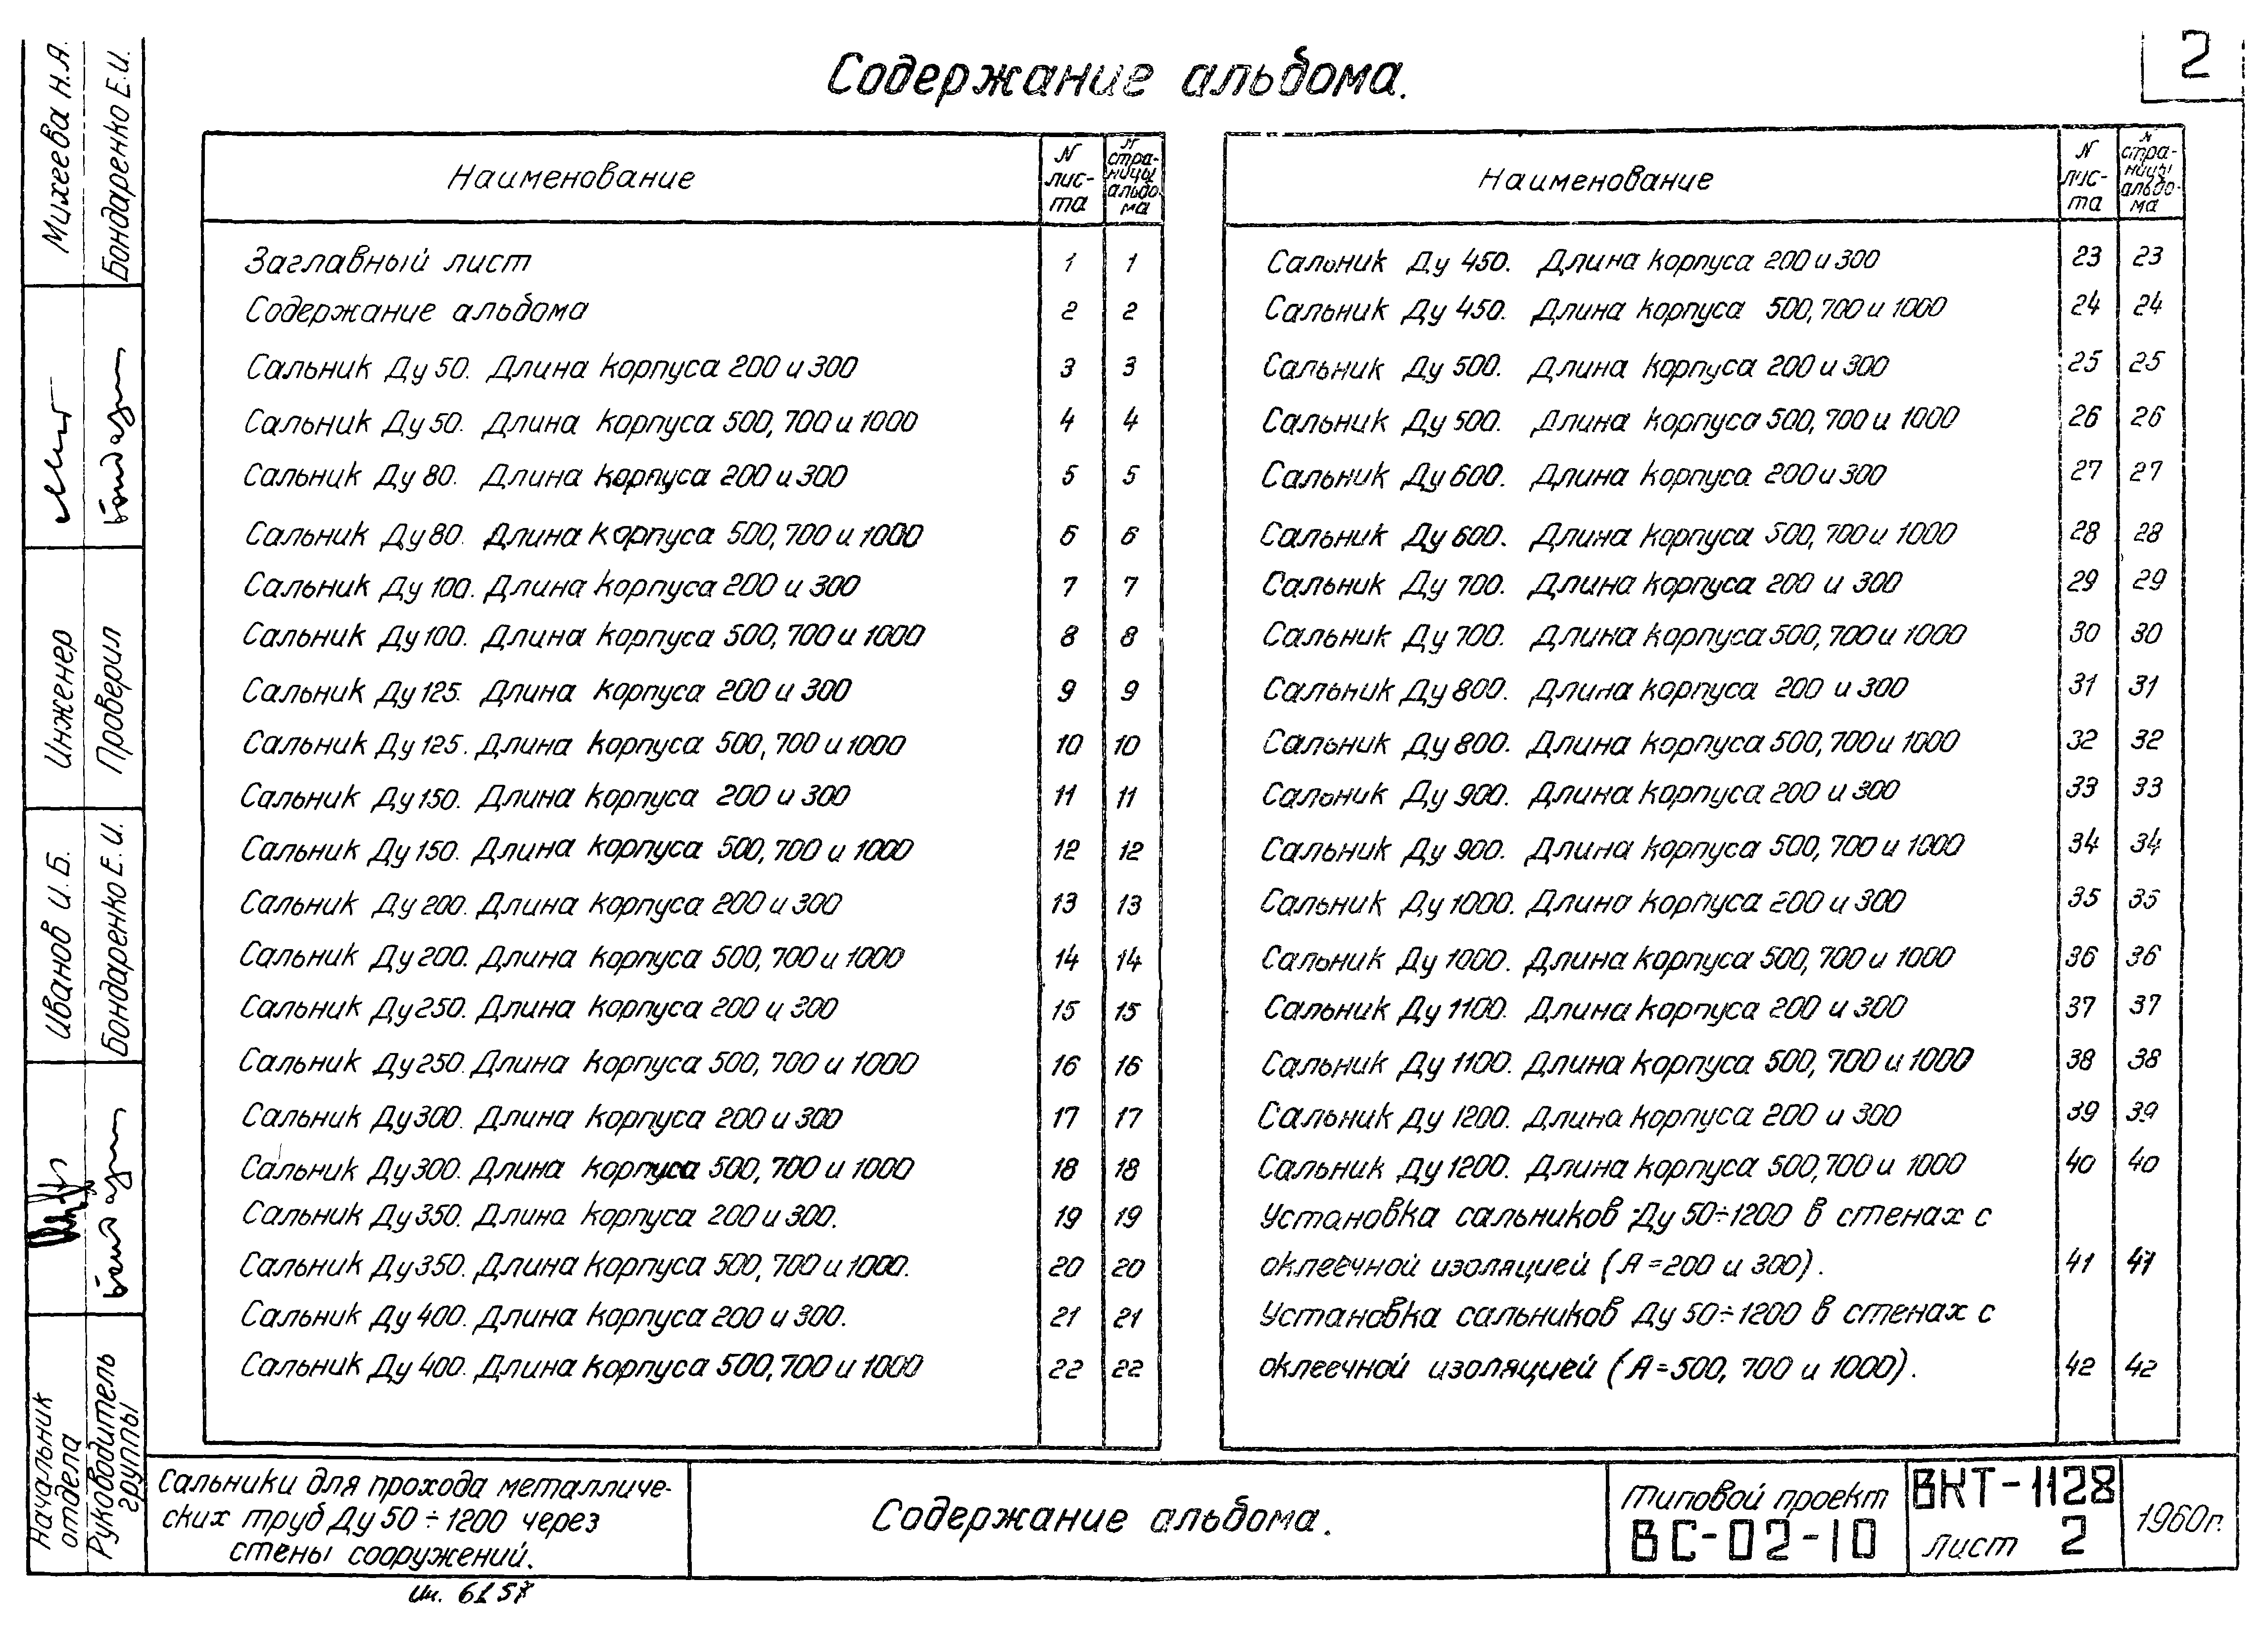 Содержание альбома.
2
Наименование
N лис-та
N стра-ницы альбо-ма
Заглавный лист 1 1
Содержание альбома 2 2
Сальник Ду 50. Длина корпуса 200 и 300 3 3
Сальник Ду 50. Длина корпуса 500, 700 и 1000 4 4
Сальник Ду 80. Длина корпуса 200 и 300 5 5
Сальник Ду 80. Длина корпуса 500, 700 и 1000 6 6
Сальник Ду 100. Длина корпуса 200 и 300 7 7
Сальник Ду 100. Длина корпуса 500, 700 и 1000 8 8
Сальник Ду 125. Длина корпуса 200 и 300 9 9
Сальник Ду 125. Длина корпуса 500, 700 и 1000 10 10
Сальник Ду 150. Длина корпуса 200 и 300 11 11
Сальник Ду 150. Длина корпуса 500, 700 и 1000 12 12
Сальник Ду 200. Длина корпуса 200 и 300 13 13
Сальник Ду 200. Длина корпуса 500, 700 и 1000 14 14
Сальник Ду 250. Длина корпуса 200 и 300 15 15
Сальник Ду 250. Длина корпуса 500, 700 и 1000 16 16
Сальник Ду 300. Длина корпуса 200 и 300 17 17
Сальник Ду 300. Длина корпуса 500, 700 и 1000 18 18
Сальник Ду 350. Длина корпуса 200 и 300. 19 19
Сальник Ду 350. Длина корпуса 500, 700 и 1000. 20 20
Сальник Ду 400. Длина корпуса 200 и 300. 21 21
Сальник Ду 400. Длина корпуса 500, 700 и 1000 22 22
Наименование
N лис-та
N стра-ницы альбо-ма
Сальник Ду 450. Длина корпуса 200 и 300 23 23
Сальник Ду 450. Длина корпуса 500, 700 и 1000 24 24
Сальник Ду 500. Длина корпуса 200 и 300 25 25
Сальник Ду 500. Длина корпуса 500, 700 и 1000 26 26
Сальник Ду 600. Длина корпуса 200 и 300 27 27
Сальник Ду 600. Длина корпуса 500, 700 и 1000 28 28
Сальник Ду 700. Длина корпуса 200 и 300 29 29
Сальник Ду 700. Длина корпуса 500, 700 и 1000 30 30
Сальник Ду 800. Длина корпуса 200 и 300 31 31
Сальник Ду 800. Длина корпуса 500, 700 и 1000 32 32
Сальник Ду 900. Длина корпуса 200 и 300 33 33
Сальник Ду 900. Длина корпуса 500, 700 и 1000 34 34
Сальник Ду 1000. Длина корпуса 200 и 300 35 35
Сальник Ду 1000. Длина корпуса 500, 700 и 1000 36 36
Сальник Ду 1100. Длина корпуса 200 и 300 37 37
Сальник Ду 1100. Длина корпуса 500, 700 и 1000 38 38
Сальник Ду 1200. Длина корпуса 200 и 300 39 39
Сальник Ду 1200. Длина корпуса 500, 700 и 1000 40 40
Установка сальников Ду 50÷1200 в стенах с
оклеечной изоляцией (А=200 и 300). 41 41
Установка сальников Ду 50÷1200 в стенах с
оклеечной изоляцией (А=500, 700 и 1000). 42 42
Начальник отдела
Иванов И. Б.
Инженер
Михеева Н.А.
Руководитель группы
Бондаренко Е. И.
Проверил
Бондаренко Е.И.
Сальники для прохода металличе-
ских труб Ду 50÷1200 через
стены сооружений.
Содержание альбома.
типовой проект
ВС-02-10
ВКТ-1128
лист 2
1960г.
6157